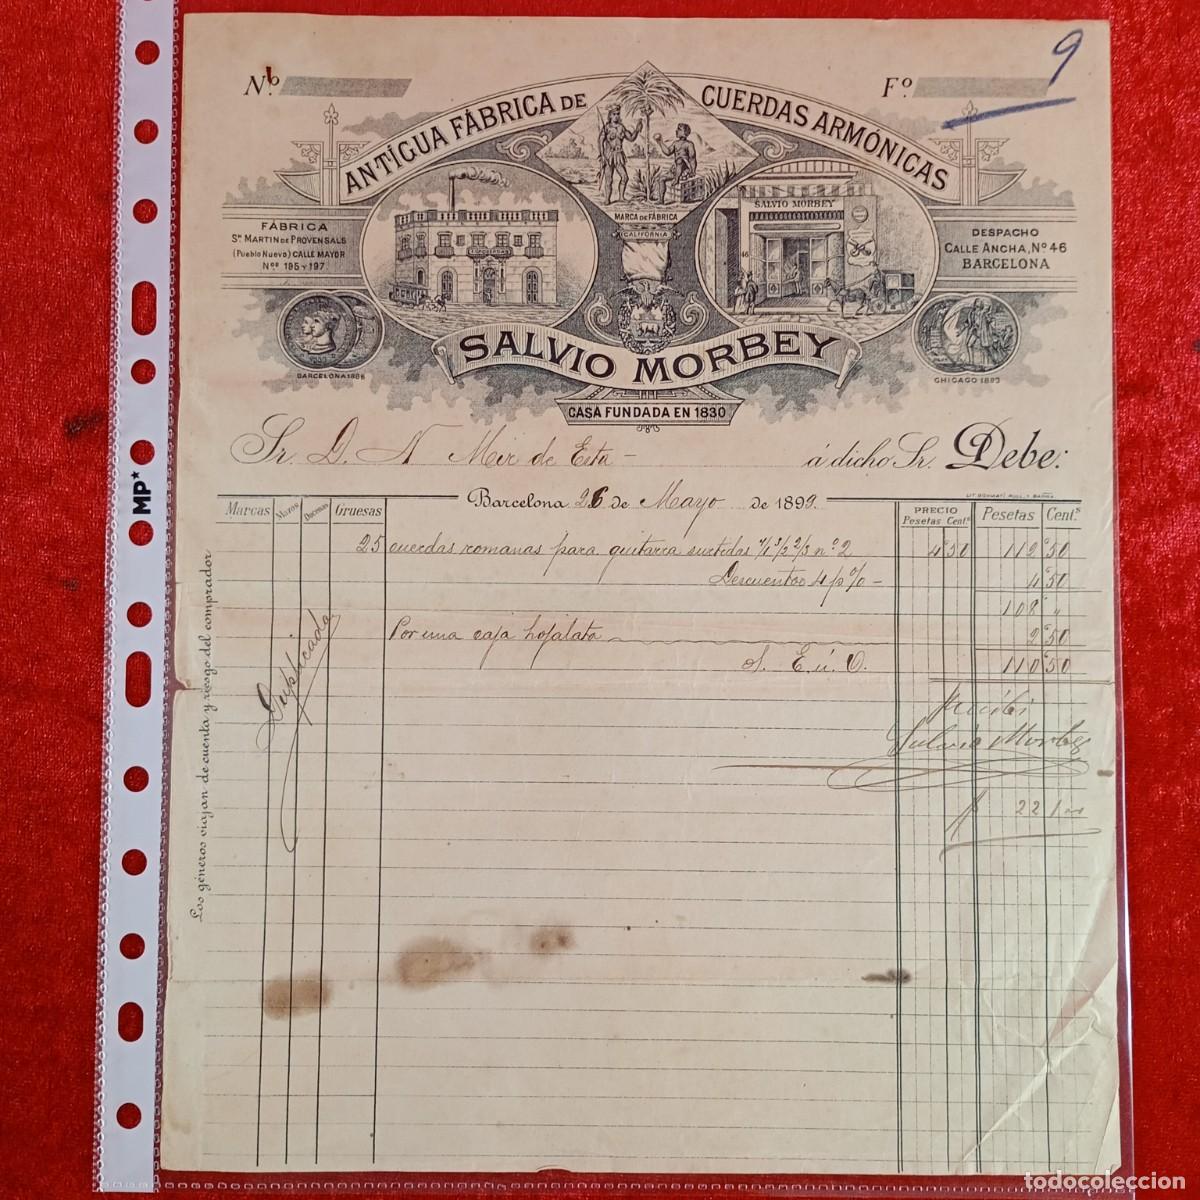 Nº
Fº
9
ANTÍGUA FÁBRICA DE CUERDAS ARMÓNICAS
SALVIO MORBEY
46
MARCA DE FÁBRICA
CALIFORNIA
FÁBRICA
Sn. MARTIN DE PROVENSALS
(Pueblo Nuevo) CALLE MAYOR
Nos 195 Y 197
DESPACHO
CALLE ANCHA, Nº 46
BARCELONA
SALVIO MORBEY
BARCELONA 1888
CHICAGO 1893
CASA FUNDADA EN 1830
Sr. D. N Mir de Esta á dicho Sr. Debe:
Barcelona 26 de Mayo de 1899.
Marcas Mazos Docenas Gruesas PRECIO Pesetas Cents. Pesetas Cent.s
25 cuerdas romanas para guitarra surtidas nº 2 4'50 112'50
Descuentos 4 p% - 4'50
108' "
Por una caja hojalata 2'50
S. E. ú O. 110'50
Duplicada
Recibí
Morbey
22
Los géneros viajan de cuenta y riesgo del comprador
MP
todocoleccion